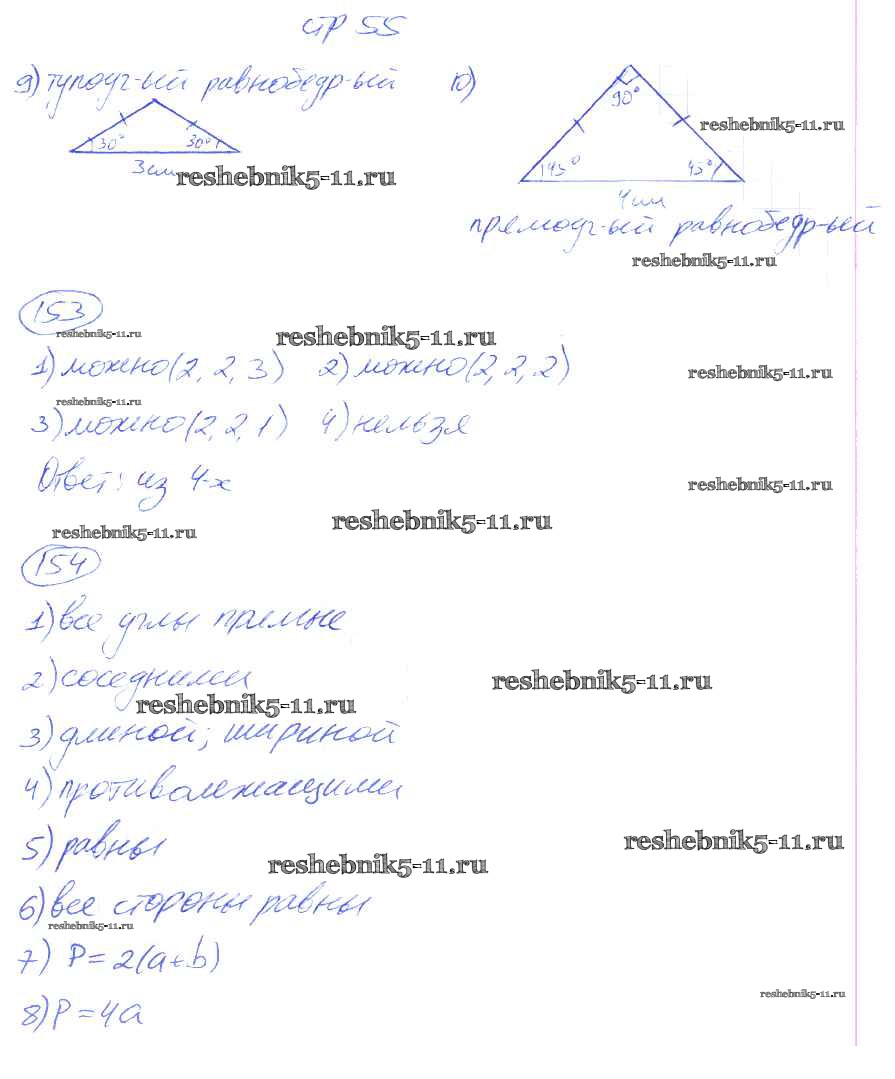 стр 55
9) тупоуг-ый равнобедр-ый 10)
90°
reshebnik5-11.ru
30° 30°
3 см
reshebnik5-11.ru
45° 45°
4 см
прямоуг-ый равнобедр-ый
reshebnik5-11.ru
153
reshebnik5-11.ru
reshebnik5-11.ru
1) можно (2, 2, 3) 2) можно (2, 2, 2)
reshebnik5-11.ru
reshebnik5-11.ru
3) можно (2, 2, 1) 4) нельзя
Ответ: из 4-х
reshebnik5-11.ru
reshebnik5-11.ru
reshebnik5-11.ru
154
1) все углы прямые
2) соседними
reshebnik5-11.ru
reshebnik5-11.ru
3) длиной; шириной
4) противолежащими
5) равны
reshebnik5-11.ru
reshebnik5-11.ru
6) все стороны равны
reshebnik5-11.ru
7) P = 2(a + b)
reshebnik5-11.ru
8) P = 4a